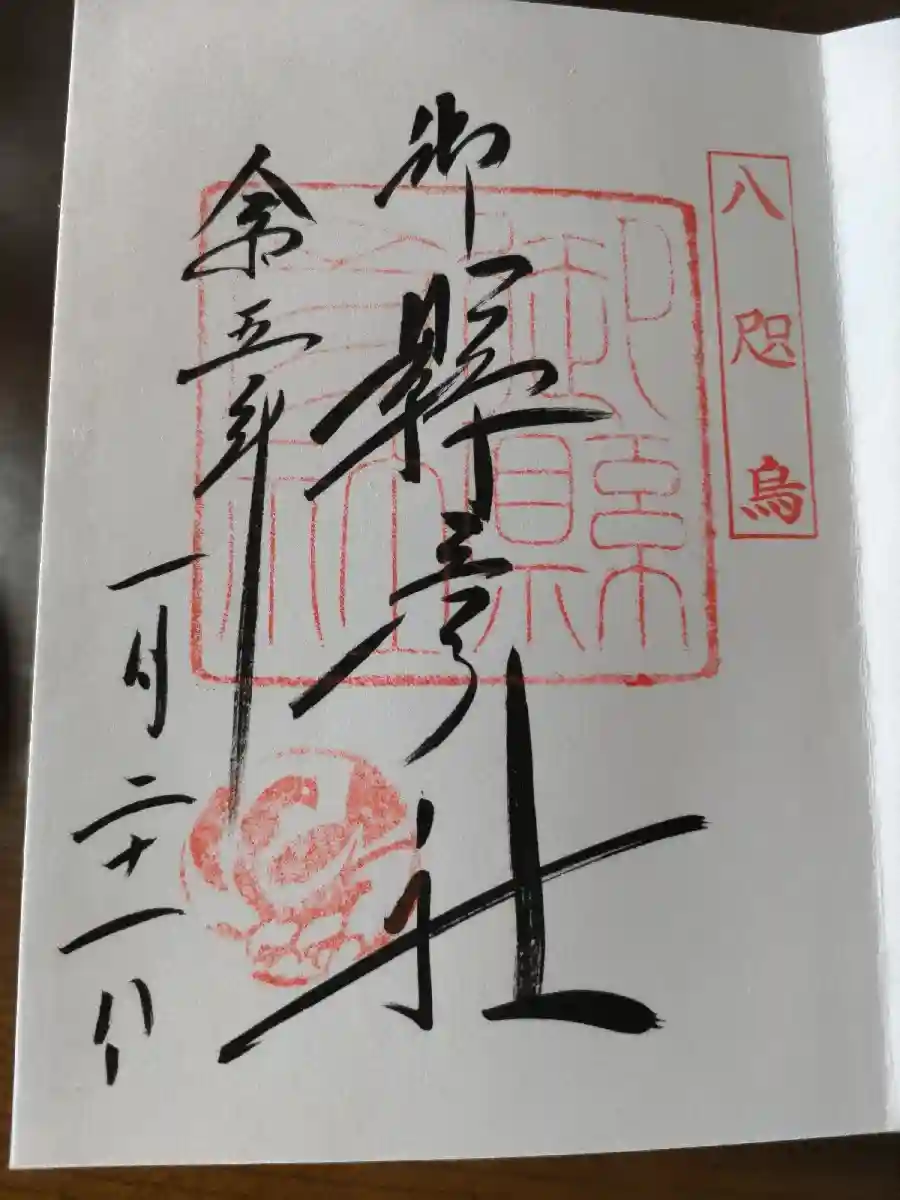 八咫烏
御縣彦社
御縣
彦社
令和五年
一月二十一日